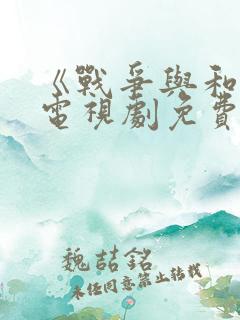 《戰爭與和
電視劇免費
魏喆銘
未經同意禁止轉載